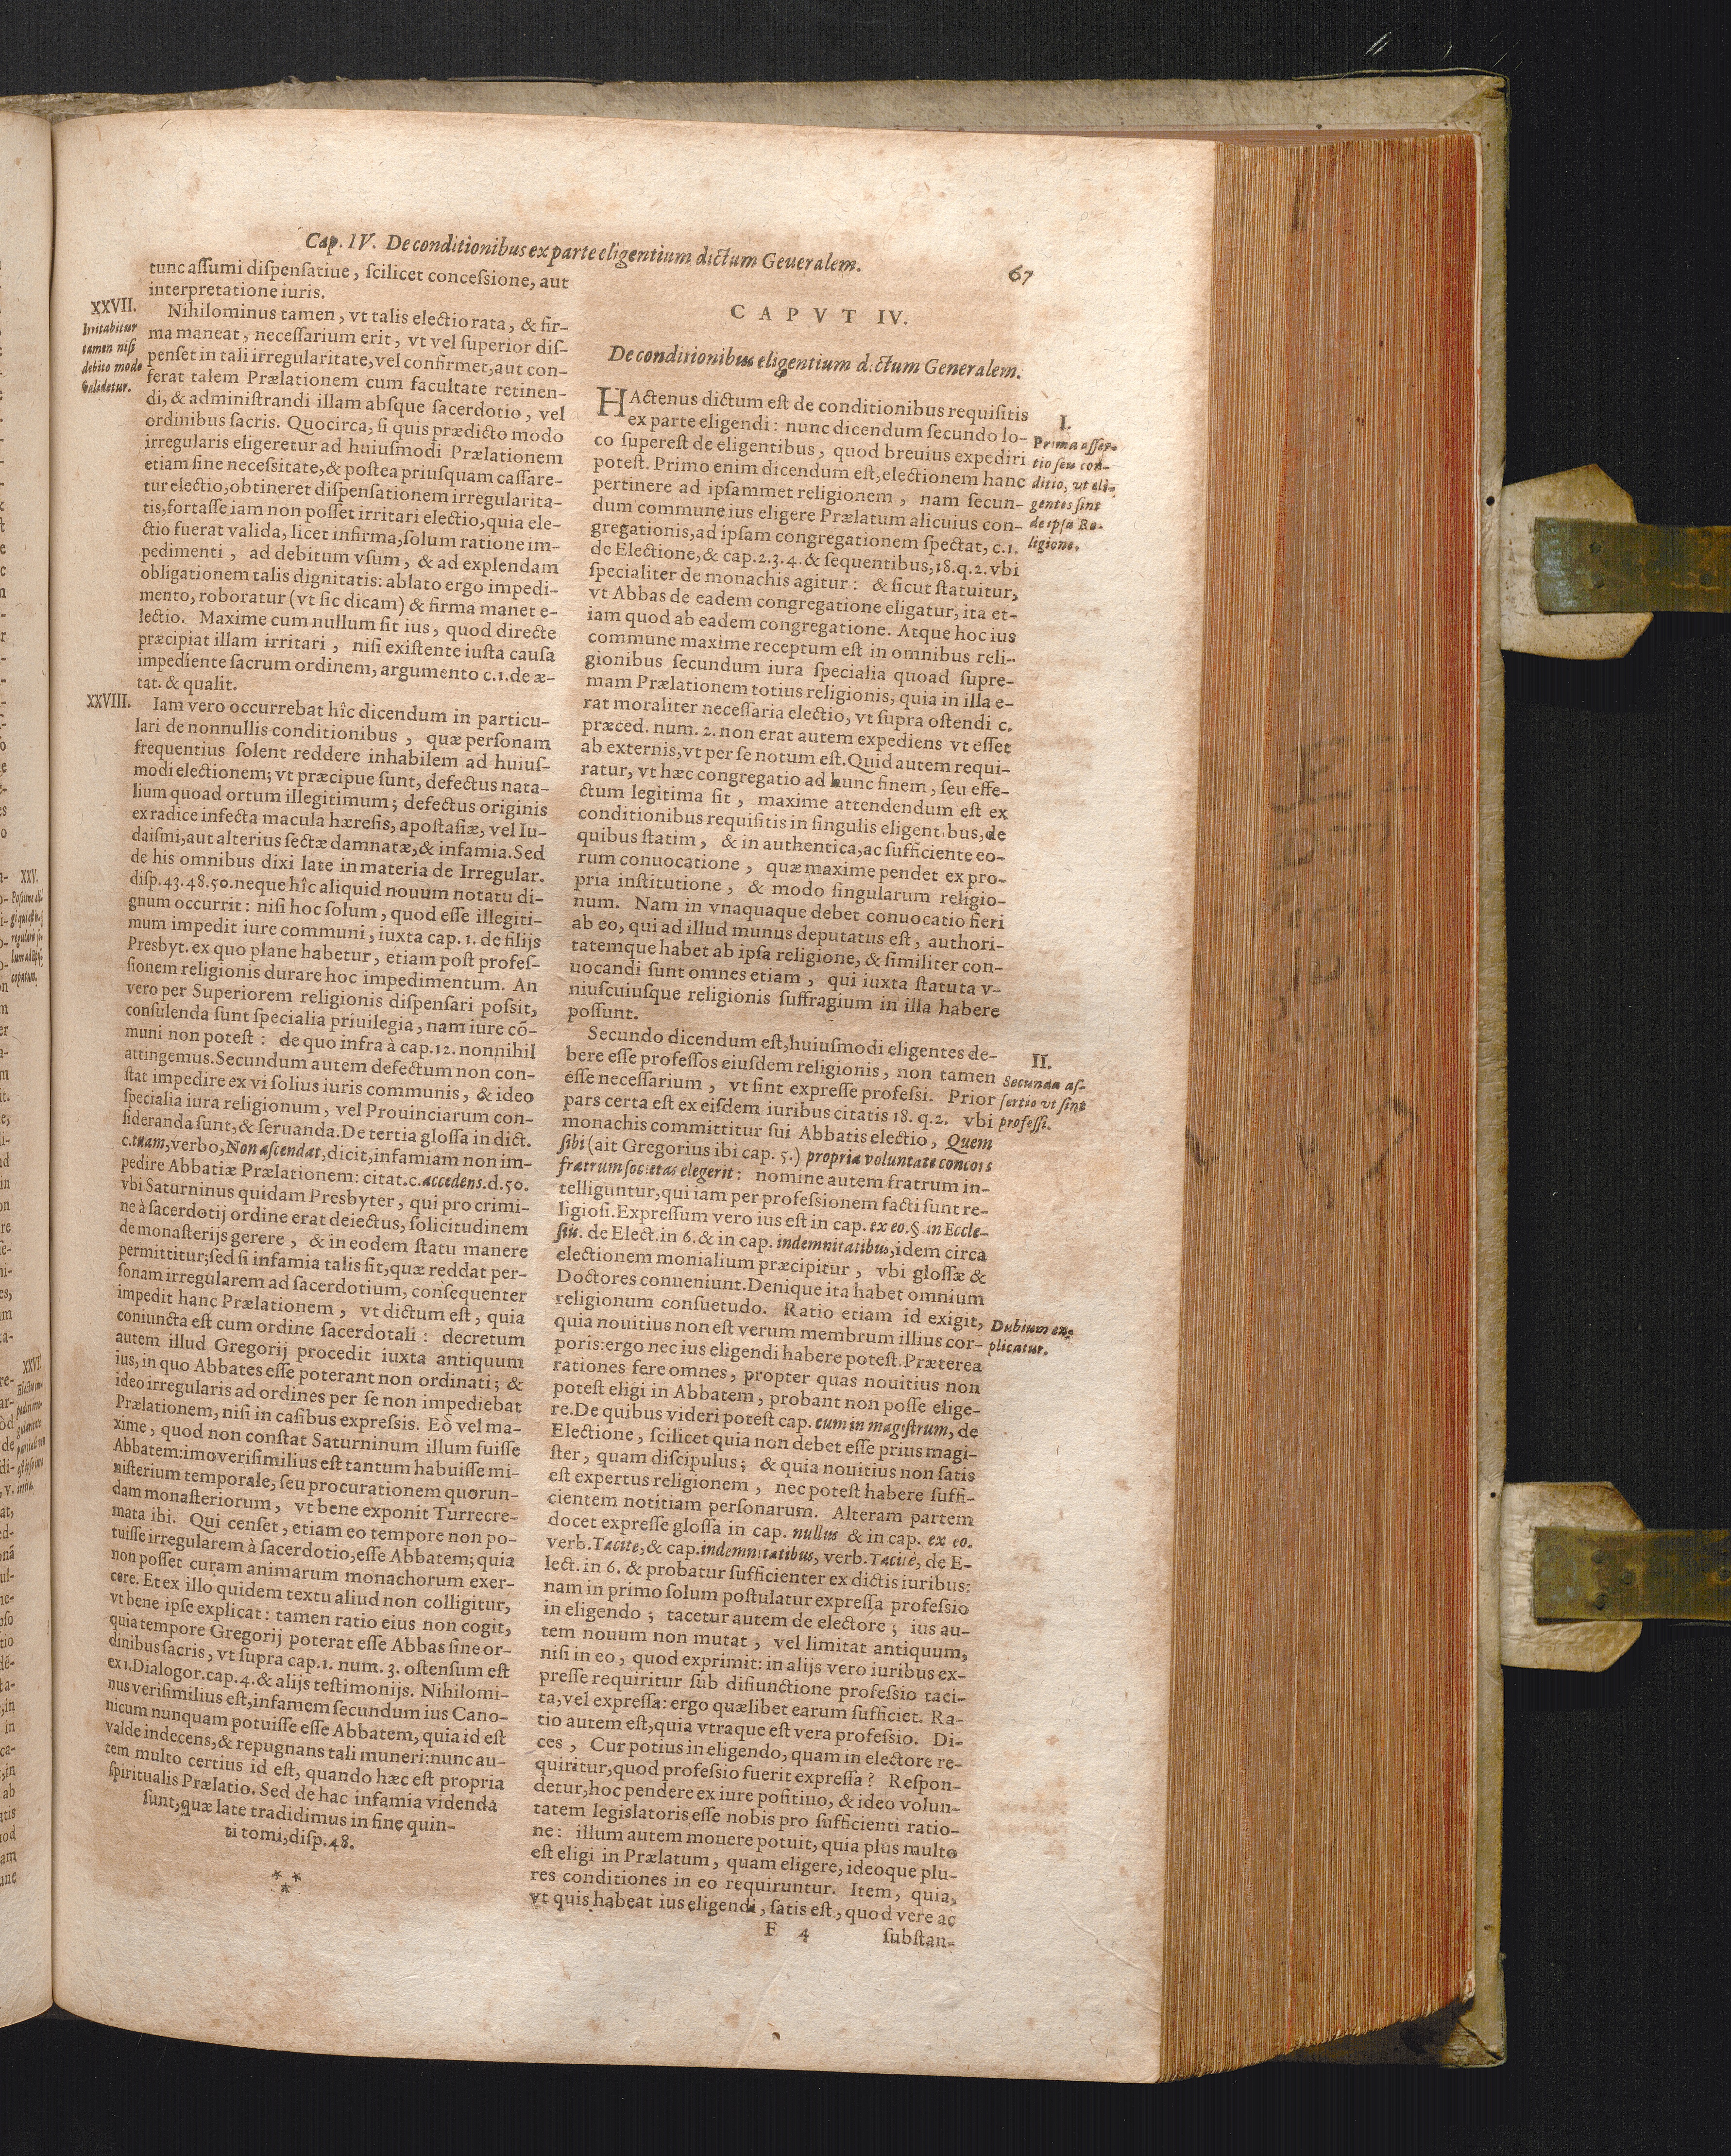 Cap. IV. De conditionibus ex parte eligentium dictum Geueralem.
67
tunc assumi dispensatiue, scilicet concessione, aut
interpretatione iuris.
XXVII.
Irritabitur
tamen nisi
debito modo
validetur.
Nihilominus tamen, vt talis electio rata, & fir-
ma maneat, necessarium erit, vt vel superior dis-
penset in tali irregularitate, vel confirmet, aut con-
ferat talem Prælationem cum facultate retinen-
di, & administrandi illam absque sacerdotio, vel
ordinibus sacris. Quocirca, si quis prædicto modo
irregularis eligeretur ad huiusmodi Prælationem
etiam sine necessitate, & postea priusquam cassare-
tur electio, obtineret dispensationem irregularita-
tis, fortasse iam non posset irritari electio, quia ele-
ctio fuerat valida, licet infirma, solum ratione im-
pedimenti, ad debitum vsum, & ad explendam
obligationem talis dignitatis: ablato ergo impedi-
mento, roboratur (vt sic dicam) & firma manet e-
lectio. Maxime cum nullum sit ius, quod directe
præcipiat illam irritari, nisi existente iusta causa
impediente sacrum ordinem, argumento c.1. de æ-
tat. & qualit.
XXVIII.
Iam vero occurrebat hîc dicendum in particu-
lari de nonnullis conditionibus, quæ personam
frequentius solent reddere inhabilem ad huius-
modi electionem; vt præcipue sunt, defectus nata-
lium quoad ortum illegitimum; defectus originis
ex radice infecta macula hæresis, apostasiæ, vel Iu-
daismi, aut alterius sectæ damnatæ, & infamia. Sed
de his omnibus dixi late in materia de Irregular.
disp. 43. 48. 50. neque hîc aliquid nouum notatu di-
gnum occurrit: nisi hoc solum, quod esse illegiti-
mum impedit iure communi, iuxta cap. 1. de filijs
Presbyt. ex quo plane habetur, etiam post profes-
sionem religionis durare hoc impedimentum. An
vero per Superiorem religionis dispensari possit,
consulenda sunt specialia priuilegia, nam iure cõ-
muni non potest: de quo infra à cap. 12. nonnihil
attingemus. Secundum autem defectum non con-
stat impedire ex vi solius iuris communis, & ideo
specialia iura religionum, vel Prouinciarum con-
sideranda sunt, & seruanda. De tertia glossa in dict.
c. tuam, verbo, Non ascendat, dicit, infamiam non im-
pedire Abbatiæ Prælationem: citat. c. accedens. d. 50.
vbi Saturninus quidam Presbyter, qui pro crimi-
ne à sacerdotij ordine erat deiectus, solicitudinem
de monasterijs gerere, & in eodem statu manere
permittitur; sed si infamia talis sit, quæ reddat per-
sonam irregularem ad sacerdotium, consequenter
impedit hanc Prælationem, vt dictum est, quia
coniuncta est cum ordine sacerdotali: decretum
autem illud Gregorij procedit iuxta antiquum
ius, in quo Abbates esse poterant non ordinati; &
ideo irregularis ad ordines per se non impediebat
Prælationem, nisi in casibus expressis. Eò vel ma-
xime, quod non constat Saturninum illum fuisse
Abbatem: imo verisimilius est tantum habuisse mi-
nisterium temporale, seu procurationem quorun-
dam monasteriorum, vt bene exponit Turrecre-
mata ibi. Qui censet, etiam eo tempore non po-
tuisse irregularem à sacerdotio, esse Abbatem; quia
non posset curam animarum monachorum exer-
cere. Et ex illo quidem textu aliud non colligitur,
vt bene ipse explicat: tamen ratio eius non cogit,
quia tempore Gregorij poterat esse Abbas sine or-
dinibus sacris, vt supra cap. 1. num. 3. ostensum est
ex 1. Dialogor. cap. 4. & alijs testimonijs. Nihilomi-
nus verisimilius est, infamem secundum ius Cano-
nicum nunquam potuisse esse Abbatem, quia id est
valde indecens, & repugnans tali muneri: nunc au-
tem multo certius id est, quando hæc est propria
spiritualis Prælatio. Sed de hac infamia videnda
sunt, quæ late tradidimus in fine quin-
ti tomi, disp. 48.
***
CAPVT IV.
De conditionibus eligentium dictum Generalem.
HActenus dictum est de conditionibus requisitis
ex parte eligendi: nunc dicendum secundo lo-
co superest de eligentibus, quod breuius expediri
potest. Primo enim dicendum est, electionem hanc
pertinere ad ipsammet religionem, nam secun-
dum commune ius eligere Prælatum alicuius con-
gregationis, ad ipsam congregationem spectat, c.1.
de Electione, & cap. 2. 3. 4. & sequentibus, 18. q. 2. vbi
specialiter de monachis agitur: & sicut statuitur,
vt Abbas de eadem congregatione eligatur, ita et-
iam quod ab eadem congregatione. Atque hoc ius
commune maxime receptum est in omnibus reli-
gionibus secundum iura specialia quoad supre-
mam Prælationem totius religionis, quia in illa e-
rat moraliter necessaria electio, vt supra ostendi c.
præced. num. 2. non erat autem expediens vt esset
ab externis, vt per se notum est. Quid autem requi-
ratur, vt hæc congregatio ad hunc finem, seu effe-
ctum legitima sit, maxime attendendum est ex
conditionibus requisitis in singulis eligentibus, de
quibus statim, & in authentica, ac sufficiente eo-
rum conuocatione, quæ maxime pendet ex pro-
pria institutione, & modo singularum religio-
num. Nam in vnaquaque debet conuocatio fieri
ab eo, qui ad illud munus deputatus est, authori-
tatemque habet ab ipsa religione, & similiter con-
uocandi sunt omnes etiam, qui iuxta statuta v-
niuscuiusque religionis suffragium in illa habere
possunt.
I.
Prima asser-
tio seu con-
ditio, ut eli-
gentes sint
de ipsa Re-
ligione.
Secundo dicendum est, huiusmodi eligentes de-
bere esse professos eiusdem religionis, non tamen
esse necessarium, vt sint expresse professi. Prior
pars certa est ex eisdem iuribus citatis 18. q. 2. vbi
monachis committitur sui Abbatis electio, Quem
sibi (ait Gregorius ibi cap. 5.) propria voluntate concors
fratrum societas elegerit: nomine autem fratrum in-
telliguntur, qui iam per professionem facti sunt re-
ligiosi. Expressum vero ius est in cap. ex eo. §. in Eccle-
siis. de Elect. in 6. & in cap. indemnitatibus, idem circa
electionem monialium præcipitur, vbi glossæ &
Doctores conueniunt. Denique ita habet omnium
religionum consuetudo. Ratio etiam id exigit,
quia nouitius non est verum membrum illius cor-
poris: ergo nec ius eligendi habere potest. Præterea
rationes fere omnes, propter quas nouitius non
potest eligi in Abbatem, probant non posse elige-
re. De quibus videri potest cap. cum in magistrum, de
Electione, scilicet quia non debet esse prius magi-
ster, quam discipulus; & quia nouitius non satis
est expertus religionem, nec potest habere suffi-
cientem notitiam personarum. Alteram partem
docet expresse glossa in cap. nullus & in cap. ex eo.
verb. Tacite, & cap. indemnitatibus, verb. Tacite, de E-
lect. in 6. & probatur sufficienter ex dictis iuribus:
nam in primo solum postulatur expressa professio
in eligendo; tacetur autem de electore; ius au-
tem nouum non mutat, vel limitat antiquum,
nisi in eo, quod exprimit: in alijs vero iuribus ex-
presse requiritur sub disiunctione professio taci-
ta, vel expressa: ergo quælibet earum sufficiet. Ra-
tio autem est, quia vtraque est vera professio. Di-
ces, Cur potius in eligendo, quam in electore re-
quiritur, quod professio fuerit expressa? Respon-
detur, hoc pendere ex iure positiuo, & ideo volun-
tatem legislatoris esse nobis pro sufficienti ratio-
ne: illum autem mouere potuit, quia plus multo
est eligi in Prælatum, quam eligere, ideoque plu-
res conditiones in eo requiruntur. Item, quia,
vt quis habeat ius eligendi, satis est, quod vere ac
II.
Secunda as-
sertio vt sint
professi.
Dubium ex-
plicatur.
F 4
substan-